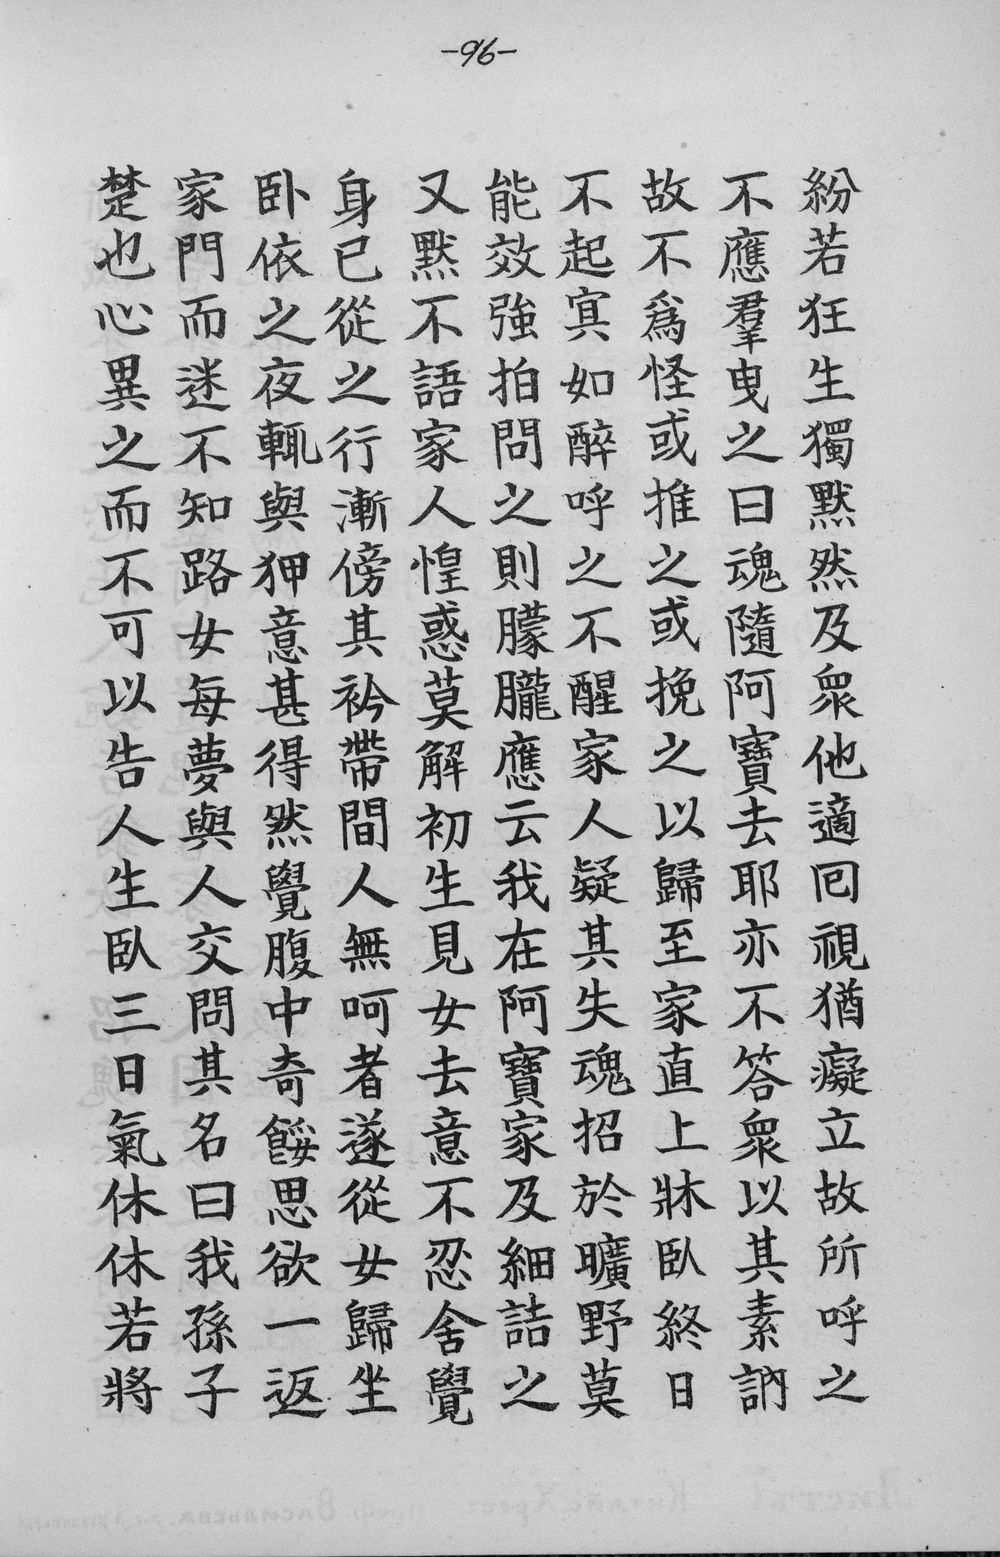 -96-
紛若狂生獨默然及眾他適回視猶癡立故所呼之
不應羣曳之曰魂隨阿寶去耶亦不答眾以其素訥
故不爲怪或推之或挽之以歸至家直上牀臥終日
不起寘如醉呼之不醒家人疑其失魂招於曠野莫
能效強拍問之則朦朧應云我在阿寶家及細詰之
又默不語家人惶惑莫解初生見女去意不忍舍覺
身已從之行漸傍其衿帶間人無呵者遂從女歸坐
卧依之夜輒與狎意甚得然覺腹中奇餒思欲一返
家門而迷不知路女每夢與人交問其名曰我孫子
楚也心異之而不可以告人生臥三日氣休休若將